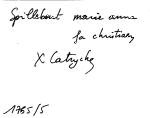 Spillebout marie anna
fa christiaen
X Catryche
1785/5